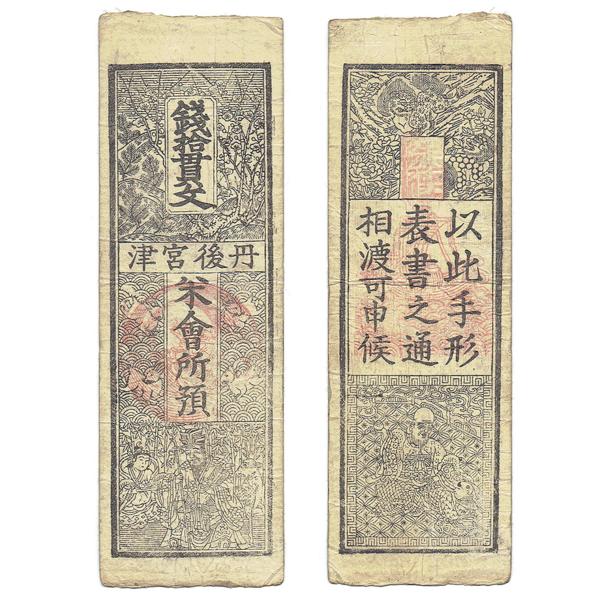 錢拾貫文
丹後宮津
米會所預
以此手形
表書之通
相渡可申候